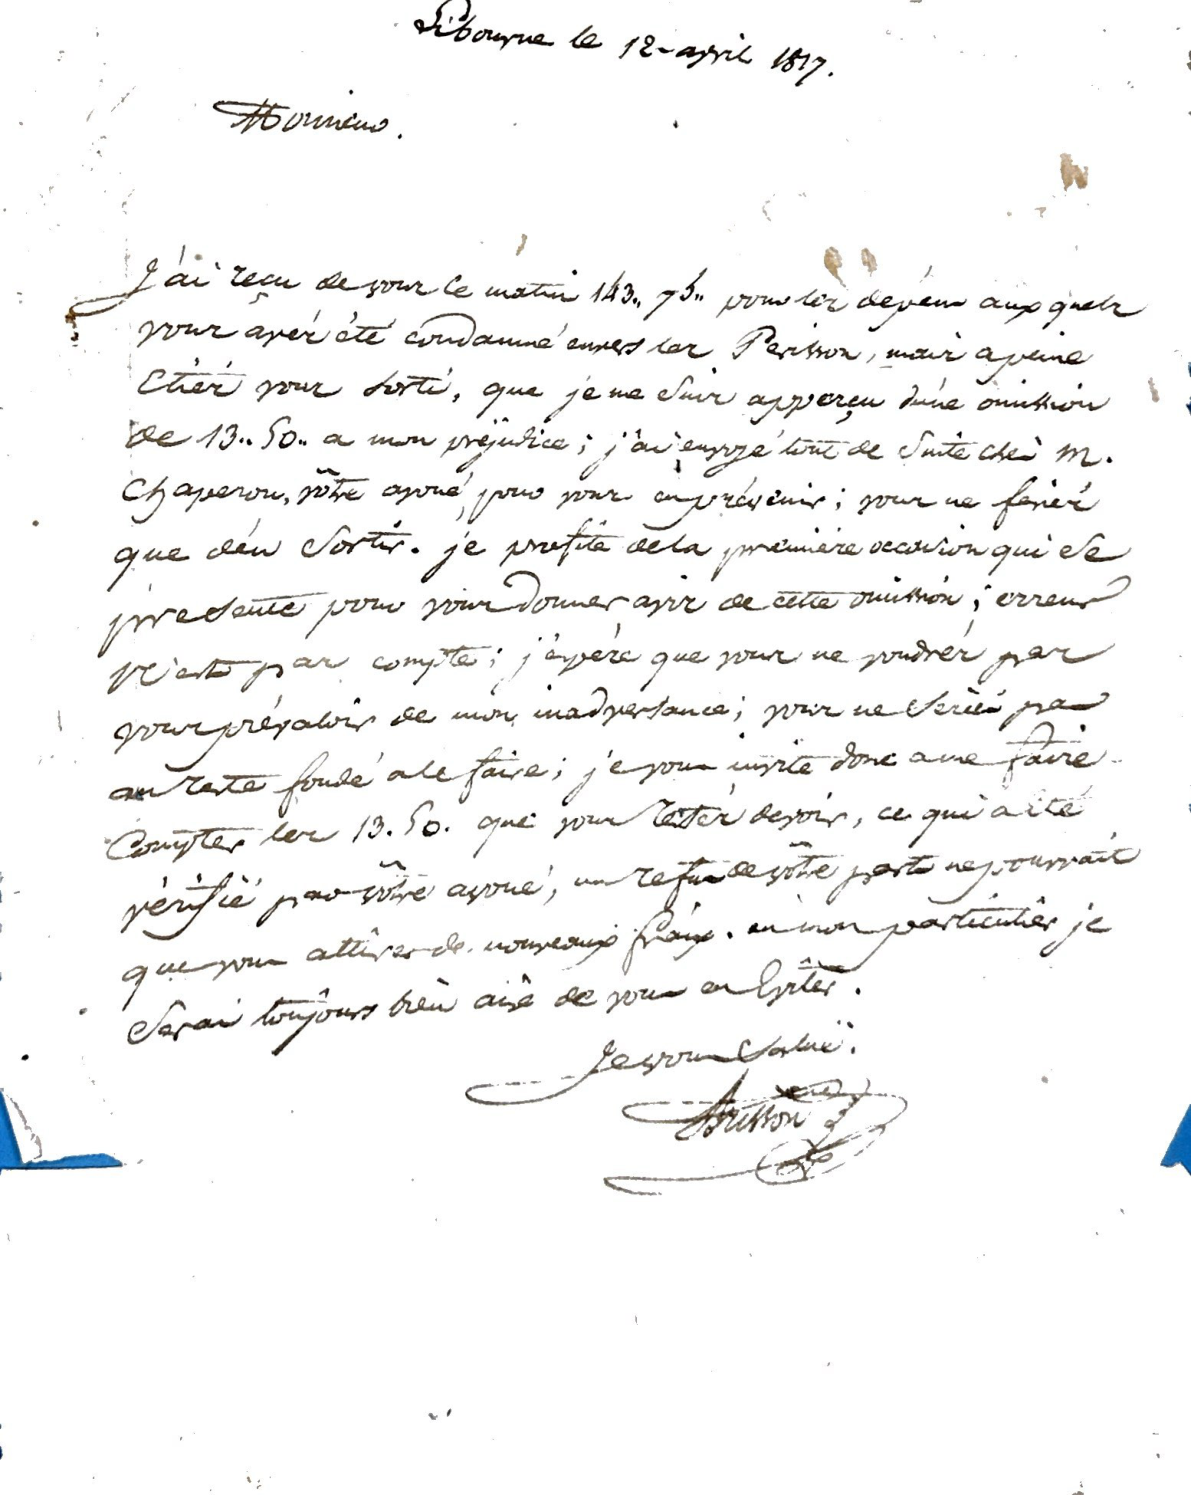 Libourne le 12 avril 1817.
Monsieur.
J'ai reçu de vous ce matin 143.. 75.. pour les dépens aux quels
vous avés été condamné envers les Perisson, mais a peine
étiés vous sorti, que je me suis apperçu d'une omission
de 13.. 50.. a mon préjudice; j'ai envoyé tout de suite chés M.
Chaperon, vôtre avoué, pour vous en prévenir; vous ne fesiés
que d'en sortir. je profite de la première occasion qui se
presente pour vous donner avis de cette omission; erreur
n'est pas compte; j'éspére que vous ne voudrés pas
vous prévaloir de mon inadversance; vous ne seriés pas
au reste fondé a le faire; je vous invite donc a me faire
Compter les 13. 50. que vous restés devoir, ce qui a été
vérifié par vôtre avoué, un refus de vôtre part ne pourrait
que vous attirer de nouveaux fraix. en mon particulier je
serai toujours bién aise de vous en éviter.
Je vous salue.
Brisson